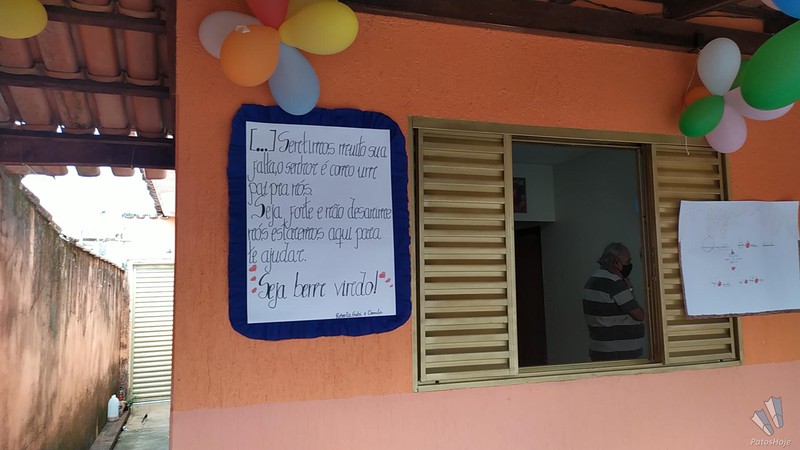 [...] Sentimos muito sua
falta, o senhor é como um
pai pra nós.
Seja forte e não desanime
nós estaremos aqui para
te ajudar.
Seja bem vindo!
e Camila
PatosHoje